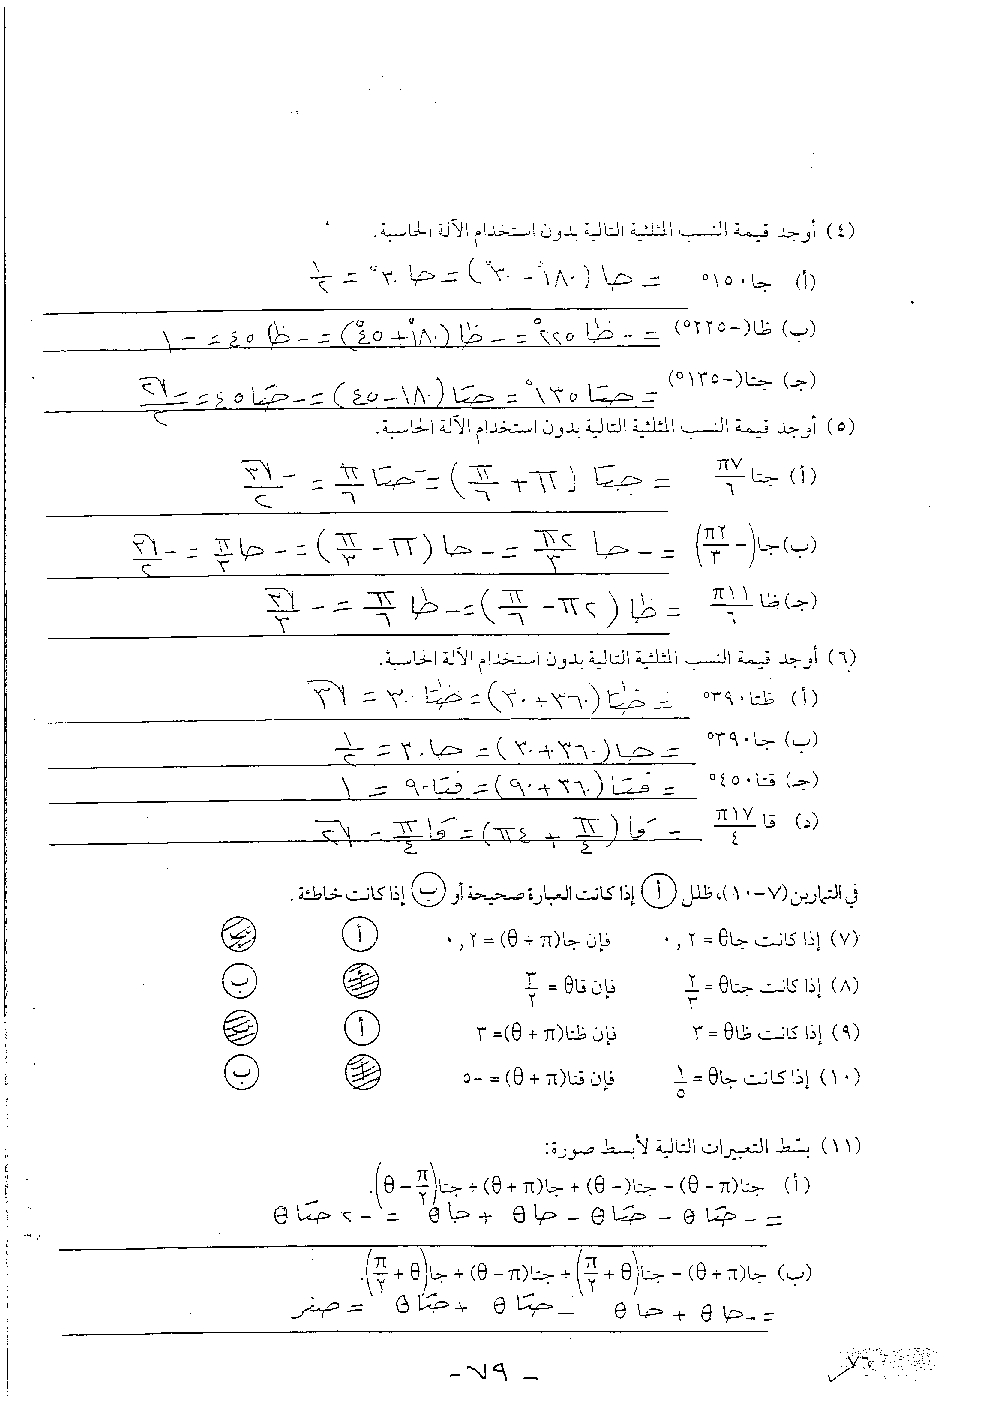 (٤) أوجد قيمة النسب المثلثية التالية بدون استخدام الآلة الحاسبة.
(أ) جا١٥٠° = جا (١٨٠° - ٣٠°) = جا ٣٠° = ١/٢
(ب) ظا(-٢٢٥°) = - ظا ٢٢٥° = - ظا (١٨٠° + ٤٥°) = - ظا ٤٥ = - ١
(جـ) جتا(-١٣٥°) = جتا ١٣٥° = جتا (١٨٠ - ٤٥) = - جتا ٤٥ = - √٢/٢
(٥) أوجد قيمة النسب المثلثية التالية بدون استخدام الآلة الحاسبة.
(أ) جتا ٧π/٦ = جتا (π + π/٦) = - جتا π/٦ = - √٣/٢
(ب) جا(- ٢π/٣) = - جا ٢π/٣ = - جا (π - π/٣) = - جا π/٣ = - √٣/٢
(جـ) ظا ١١π/٦ = ظا (٢π - π/٦) = - ظا π/٦ = - √٣/٣
(٦) أوجد قيمة النسب المثلثية التالية بدون استخدام الآلة الحاسبة.
(أ) ظتا٣٩٠° = ظتا (٣٦٠ + ٣٠) = ظتا ٣٠ = √٣
(ب) جا٣٩٠° = جا (٣٦٠ + ٣٠) = جا ٣٠ = ١/٢
(جـ) قتا٤٥٠° = قتا (٣٦٠ + ٩٠) = قتا ٩٠ = ١
(د) قا ١٧π/٤ = قا (π/٤ + ٤π) = قا π/٤ = √٢
في التمارين (٧-١٠)، ظلل (أ) إذا كانت العبارة صحيحة أو (ب) إذا كانت خاطئة.
(٧) إذا كانت جاθ = ٠,٢ فإن جا(π + θ) = ٠,٢ أ ب
(٨) إذا كانت جتاθ = ٢/٣ فإن قاθ = ٣/٢ أ ب
(٩) إذا كانت ظاθ = ٣ فإن ظتا(π + θ) = ٣ أ ب
(١٠) إذا كانت جاθ = ١/٥ فإن قتا(π + θ) = -٥ أ ب
(١١) بسّط التعبيرات التالية لأبسط صورة:
(أ) جتا(π - θ) - جتا(- θ) + جا(π + θ) + جتا(π/٢ - θ).
= - جتا θ - جتا θ - جا θ + جا θ = - ٢ جتا θ
(ب) جا(π + θ) - جتا(θ + π/٢) + جتا(π - θ) + جا(θ + π/٢).
= - جا θ + جا θ - جتا θ + جتا θ = صفر
- ٧٩ -
٧٦